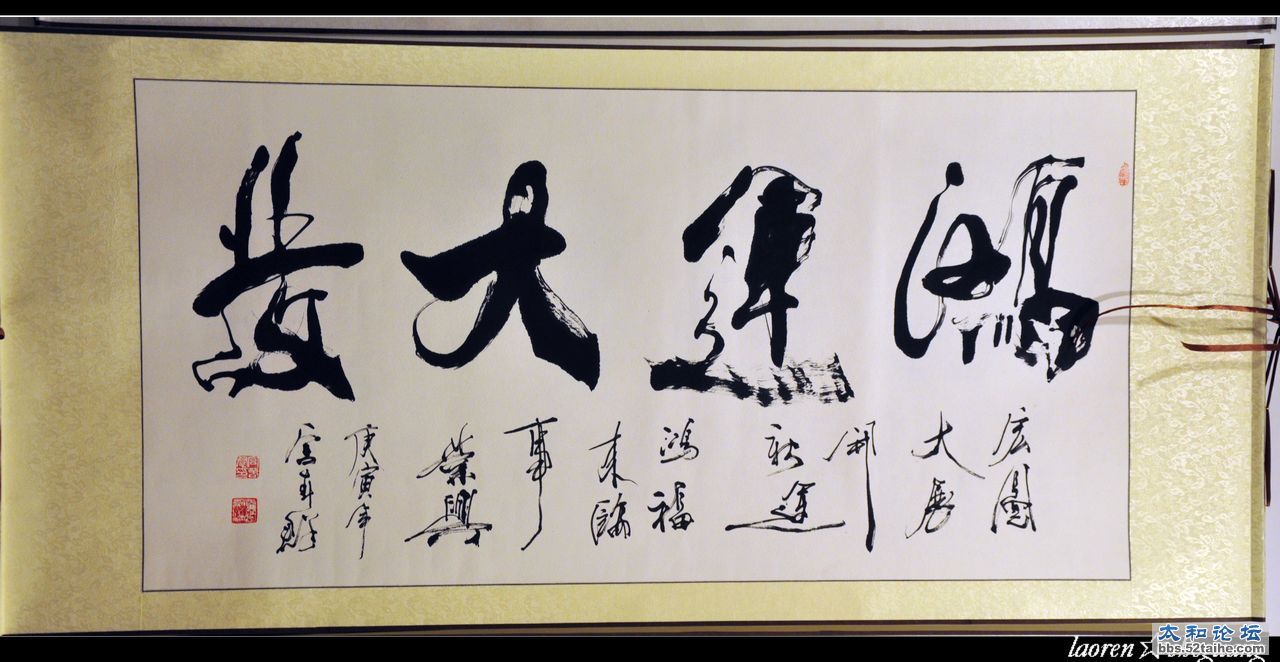 鴻運大發
宏圖
大展
開
新運
鴻福
来臨
事
業興
庚寅年
太和论坛
bbs.52taihe.com
laoren